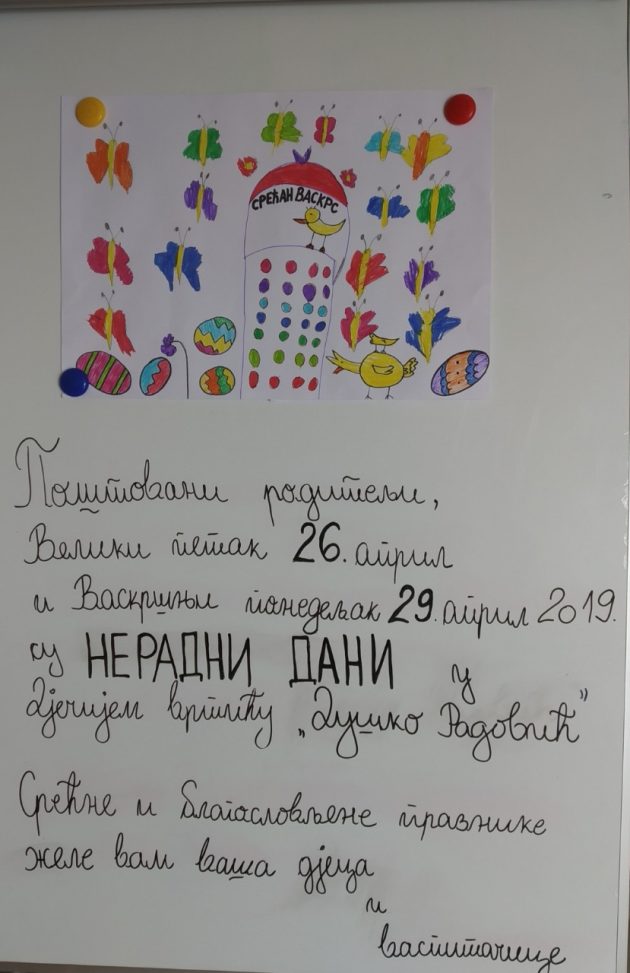 СРЕЋАН ВАСКРС
Поштовани родитељи,
Велики петак 26. април
и Васкршњи понедељак 29. април 2019.
су НЕРАДНИ ДАНИ у
Дјечијем вртићу „Душко Радовић"
Срећне и благословљене празнике
желе вам ваша дјеца
и
васпитачице